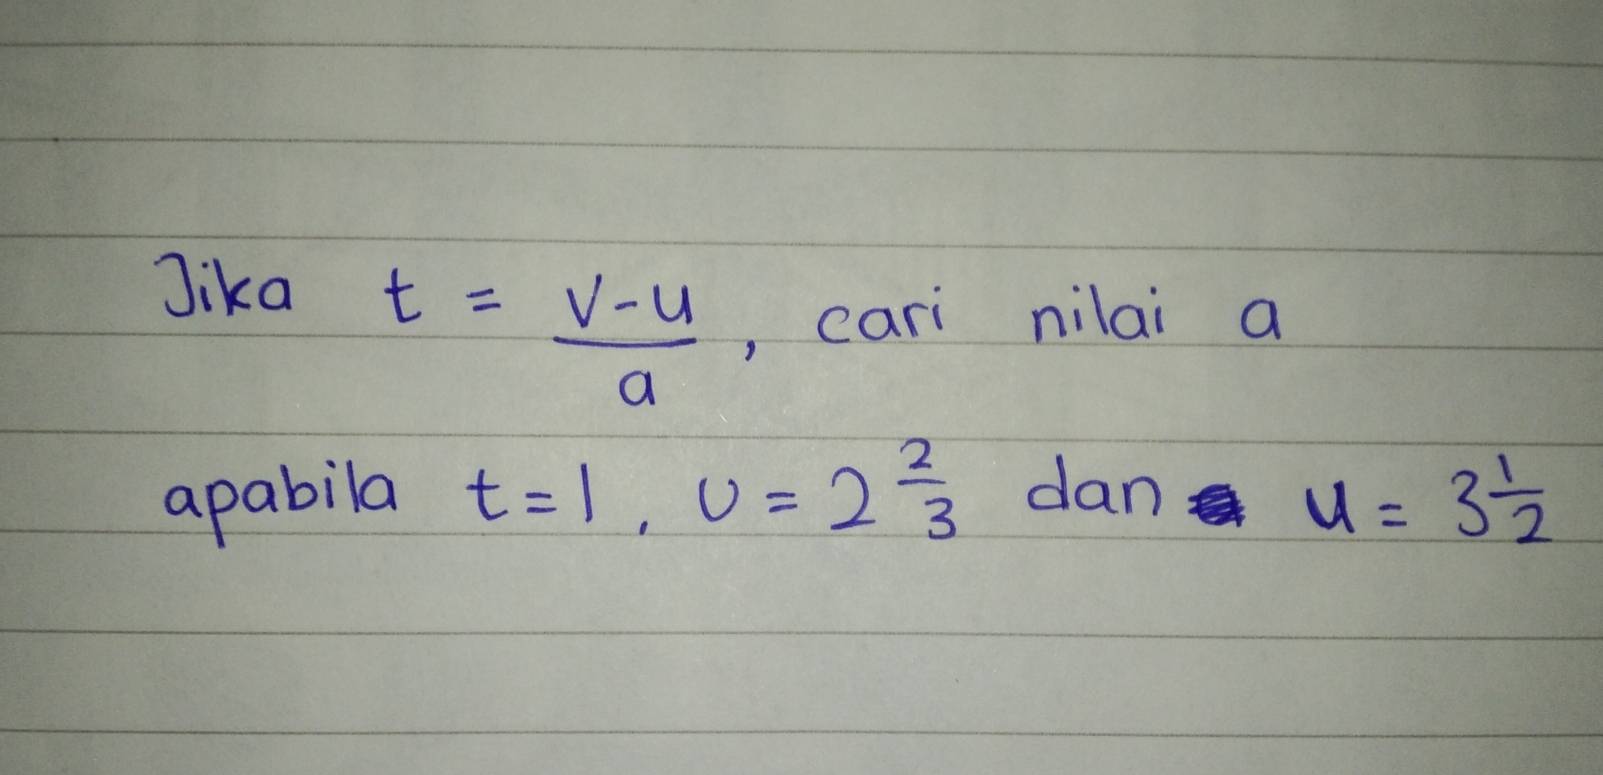 Jika t = v-u/a, cari nilai a
apabila t=1, v = 2 2/3 dan u = 3 1/2